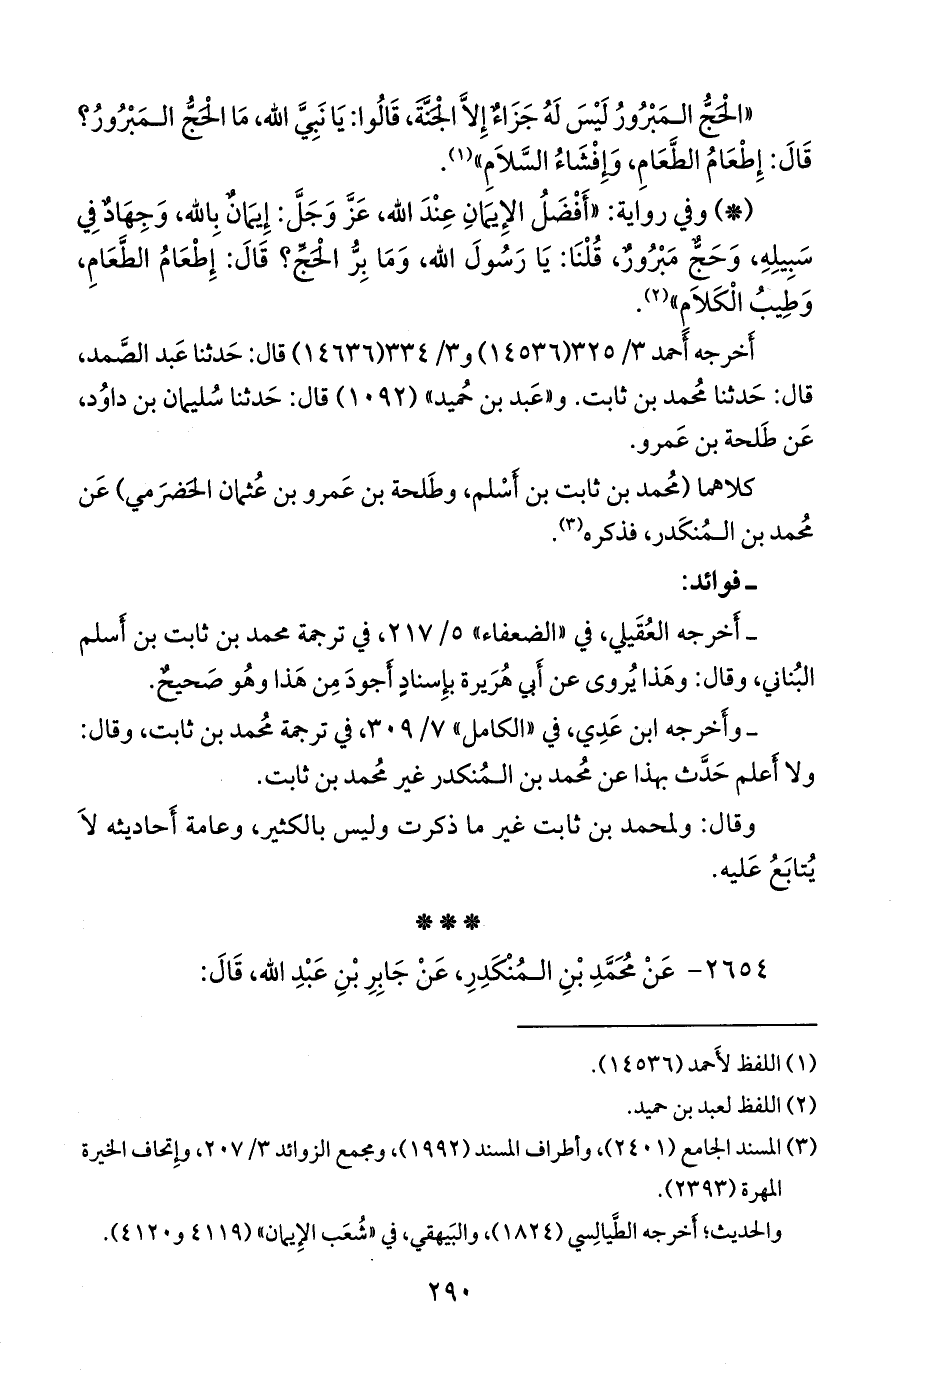 «الْحَجُّ الـمَبْرُورُ لَيْسَ لَهُ جَزَاءٌ إِلاَّ الْجَنَّةَ، قَالُوا: يَا نَبِيَّ الله، مَا الْحَجُّ الـمَبْرُورُ؟
قَالَ: إِطْعَامُ الطَّعَامِ، وَإِفْشَاءُ السَّلاَمِ»(١).
(*) وفي رواية: «أَفْضَلُ الإِيمَانِ عِنْدَ الله، عَزَّ وَجَلَّ: إِيمَانٌ بِالله، وَجِهَادٌ فِي
سَبِيلِهِ، وَحَجٌّ مَبْرُورٌ، قُلْنَا: يَا رَسُولَ الله، وَمَا بِرُّ الْحَجِّ؟ قَالَ: إِطْعَامُ الطَّعَامِ،
وَطِيبُ الْكَلاَمِ»(٢).
أَخرجه أَحمد ٣/ ٣٢٥(١٤٥٣٦) و٣/ ٣٣٤(١٤٦٣٦) قال: حَدثنا عَبد الصَّمد،
قال: حَدثنا مُحمد بن ثابت. و«عَبد بن حُميد» (١٠٩٢) قال: حَدثنا سُليمان بن داوُد،
عَن طَلحة بن عَمرو.
كلاهما (مُحمد بن ثابت بن أَسْلم، وطَلحة بن عَمرو بن عُثمان الحَضرَمي) عَن
مُحمد بن الـمُنكَدر، فذكره(٣).
ـ فوائد:
ـ أَخرجه العُقَيلي، في «الضعفاء» ٥/ ٢١٧، في ترجمة محمد بن ثابت بن أَسلم
البُناني، وقال: وهَذا يُروى عن أَبي هُرَيرة بإِسنادٍ أَجودَ مِن هَذا وهُو صَحيحٌ.
ـ وأَخرجه ابن عَدِي، في «الكامل» ٧/ ٣٠٩، في ترجمة مُحمد بن ثابت، وقال:
ولا أَعلم حَدَّث بهذا عن مُحمد بن الـمُنكدر غير مُحمد بن ثابت.
وقال: ولمحمد بن ثابت غير ما ذكرت وليس بالكثير، وعامة أَحاديثه لاَ
يُتابَعُ عَليه.
* * *
٢٦٥٤- عَنْ مُحَمَّدِ بْنِ الـمُنْكَدِرِ، عَنْ جَابِرِ بْنِ عَبْدِ الله، قَالَ:
(١) اللفظ لأَحمد (١٤٥٣٦).
(٢) اللفظ لعبد بن حميد.
(٣) المسند الجامع (٢٤٠١)، وأطراف المسند (١٩٩٢)، ومجمع الزوائد ٣/ ٢٠٧، وإِتحاف الخيرة
المهرة (٢٣٩٣).
والحديث؛ أخرجه الطَّيالِسي (١٨٢٤)، والبَيهقي، في «شُعَب الإِيمان» (٤١١٩ و٤١٢٠).
٢٩٠